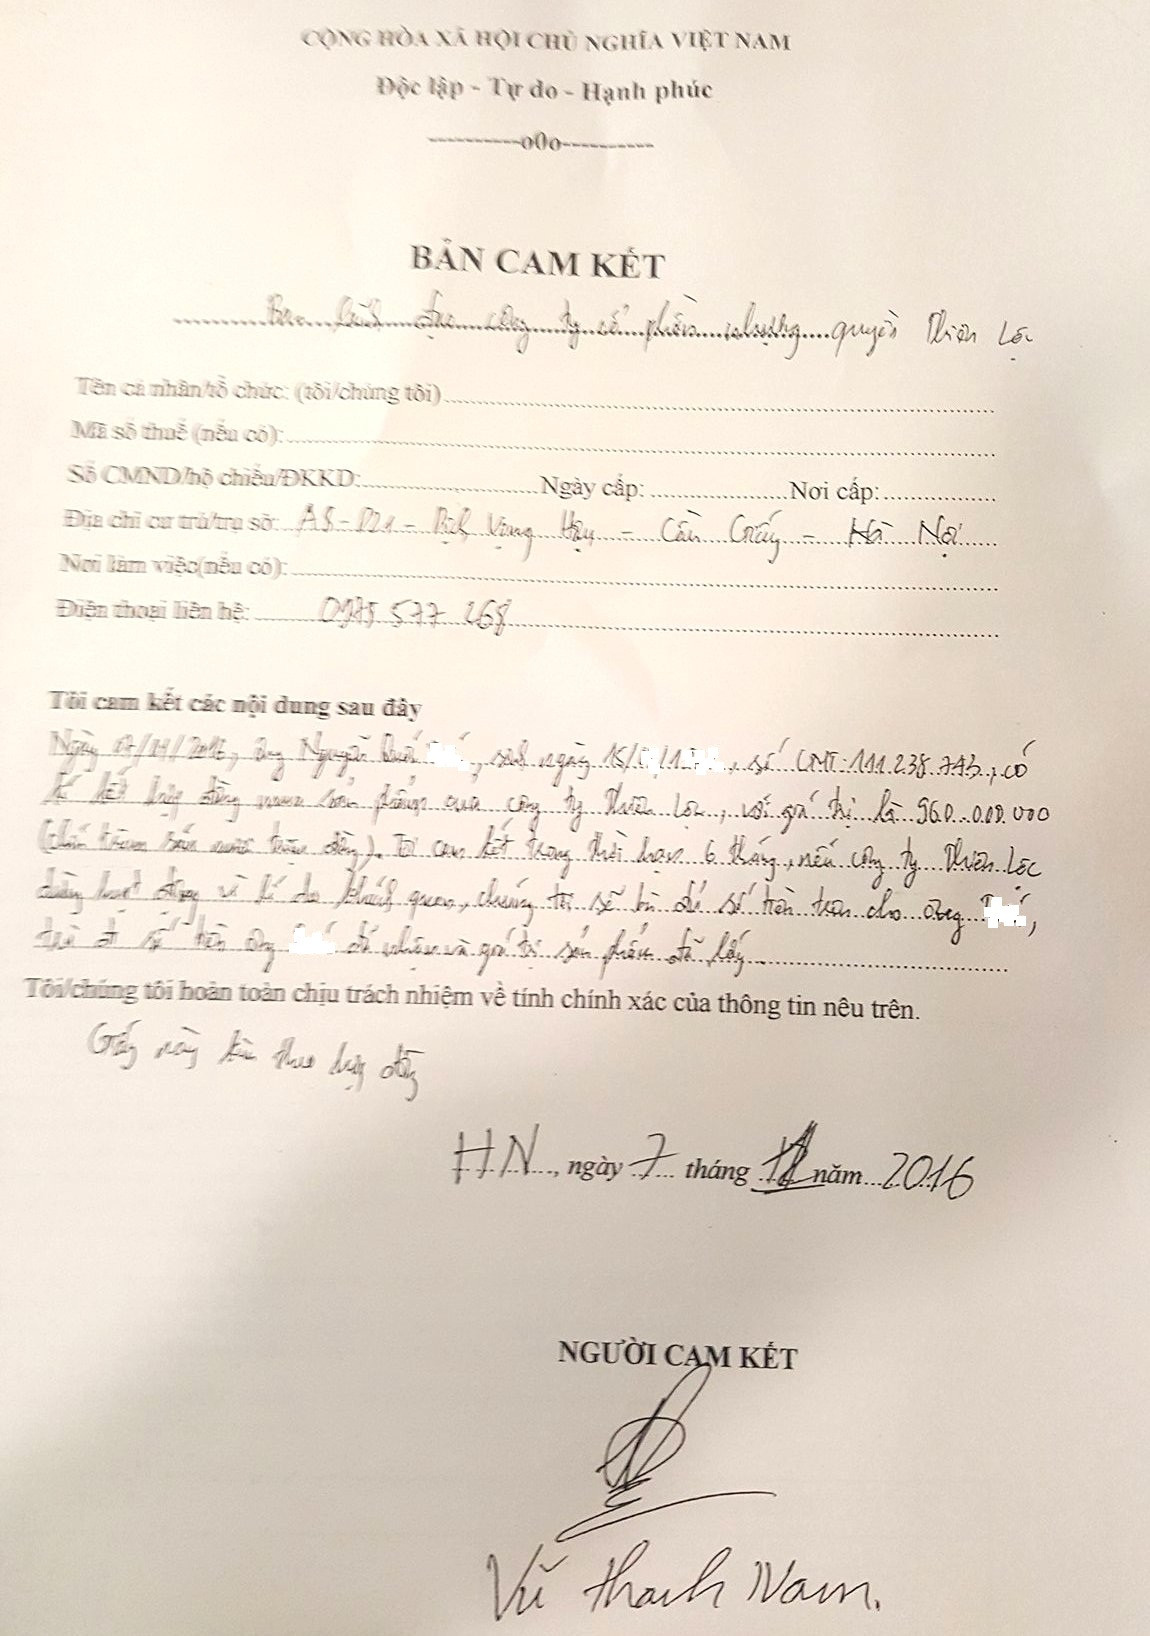 CỘNG HÒA XÃ HỘI CHỦ NGHĨA VIỆT NAM
Độc lập - Tự do - Hạnh phúc
----------o0o----------
BẢN CAM KẾT
Ban lãnh đạo công ty cổ phần nhượng quyền Thiên Lộc
Tên cá nhân/tổ chức: (tôi/chúng tôi)
Mã số thuế (nếu có):
Số CMND/hộ chiếu/ĐKKD: Ngày cấp: Nơi cấp:
Địa chỉ cư trú/trụ sở: - D21 - Dịch Vọng Hậu - Cầu Giấy - Hà Nội
Nơi làm việc(nếu có):
Điện thoại liên hệ: 0975 577 268
Tôi cam kết các nội dung sau đây
Ngày /2016, ông Nguyễn , sinh ngày 15/ , số CMT: 111 238 743, có
kí kết hợp đồng mua sản phẩm của công ty Thiên Lộc, với giá trị là 960.000.000
(Chín trăm sáu mươi triệu đồng). Tôi cam kết trong thời hạn 6 tháng, nếu công ty Thiên Lộc
dừng hoạt động vì lí do khách quan, chúng tôi sẽ bù đủ số tiền trên cho ông ,
trừ đi số tiền ông đã nhận và giá trị sản phẩm đã lấy
Tôi/chúng tôi hoàn toàn chịu trách nhiệm về tính chính xác của thông tin nêu trên.
Giấy này kèm theo hợp đồng
HN, ngày 7 tháng năm 2016
NGƯỜI CAM KẾT
Vũ Thanh Nam.